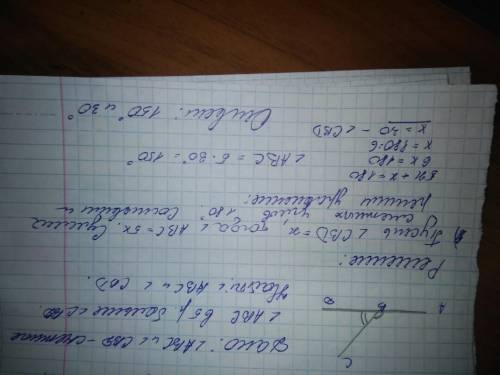 Дано: ∠ABC и ∠CBD - смежные
∠ABC в 5 р. больше ∠CBD.
Найти: ∠ABC и ∠CBD.
A
B
D
C
Решение:
1) Пусть ∠CBD = x, тогда ∠ABC = 5x. Сумма
смежных углов 180°. Составим и
решим уравнение:
5x + x = 180
6x = 180
x = 180:6
x = 30 - ∠CBD
∠ABC = 5·30° = 150°
Ответ: 150° и 30°